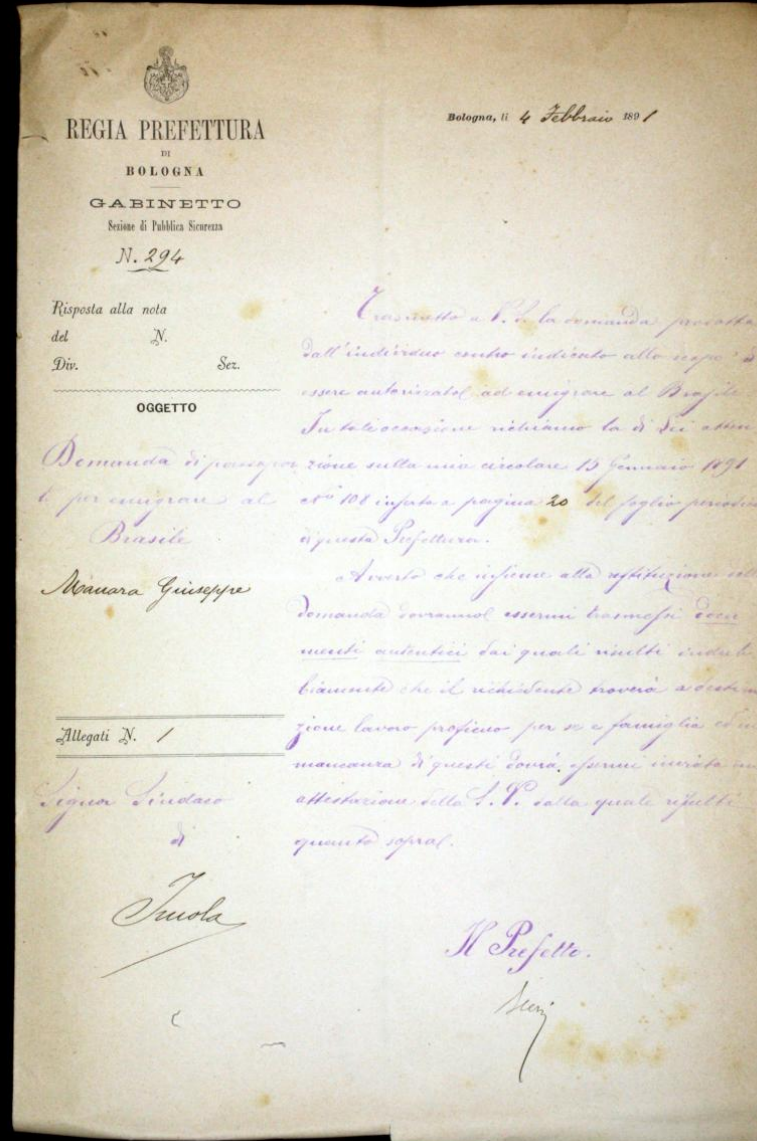 REGIA PREFETTURA
DI
BOLOGNA
GABINETTO
Sezione di Pubblica Sicurezza
N. 294
Bologna, li 4 Febbraio 1891
Risposta alla nota
del N.
Div. Sez.
OGGETTO
Domanda di passapor
to per emigrare al
Brasile
Manara Giuseppe
Allegati N. 1
Signor Sindaco
di
Imola
Trasmetto a V. S. la domanda prodotta
dall'individuo contro indicato allo scopo di
essere autorizzato ad emigrare al Brasile.
In tale occasione richiamo la di Lei atten
zione sulla mia circolare 15 Gennaio 1891
No 108 inserta a pagina 20 del foglio periodico
di questa Prefettura.
Avverto che insieme alla restituzione della
domanda dovranno essermi trasmessi docu
menti autentici dai quali risulti indub
biamente che il richiedente troverà a destina
zione lavoro proficuo per se e famiglia ed in
mancanza di questi dovrà essermi inviata una
attestazione della S. V. dalla quale risulti
quanto sopra.
Il Prefetto.